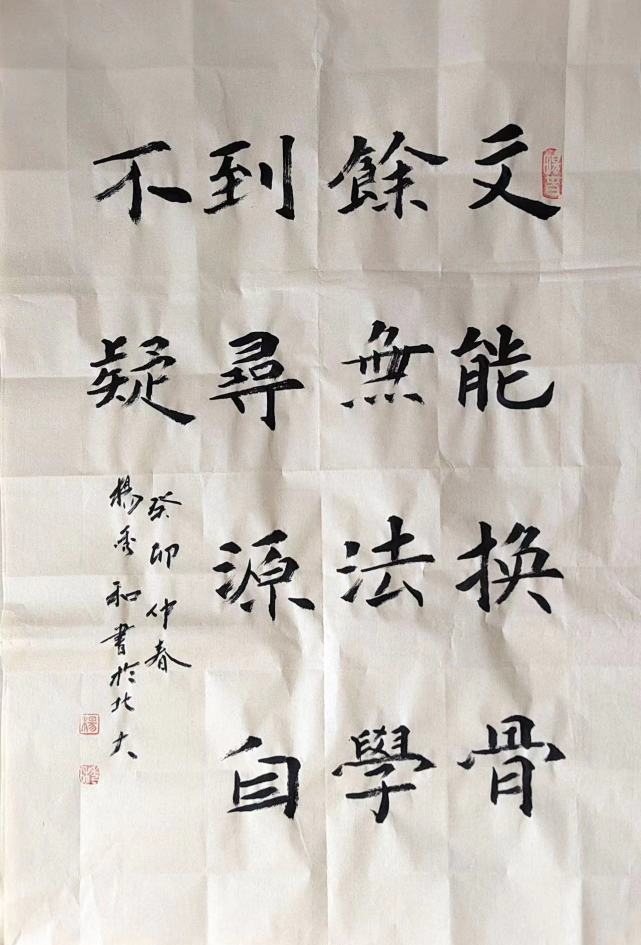 文能換骨
餘無法學
到尋源自
不疑
癸卯仲春
楊秀和書於北大
楊